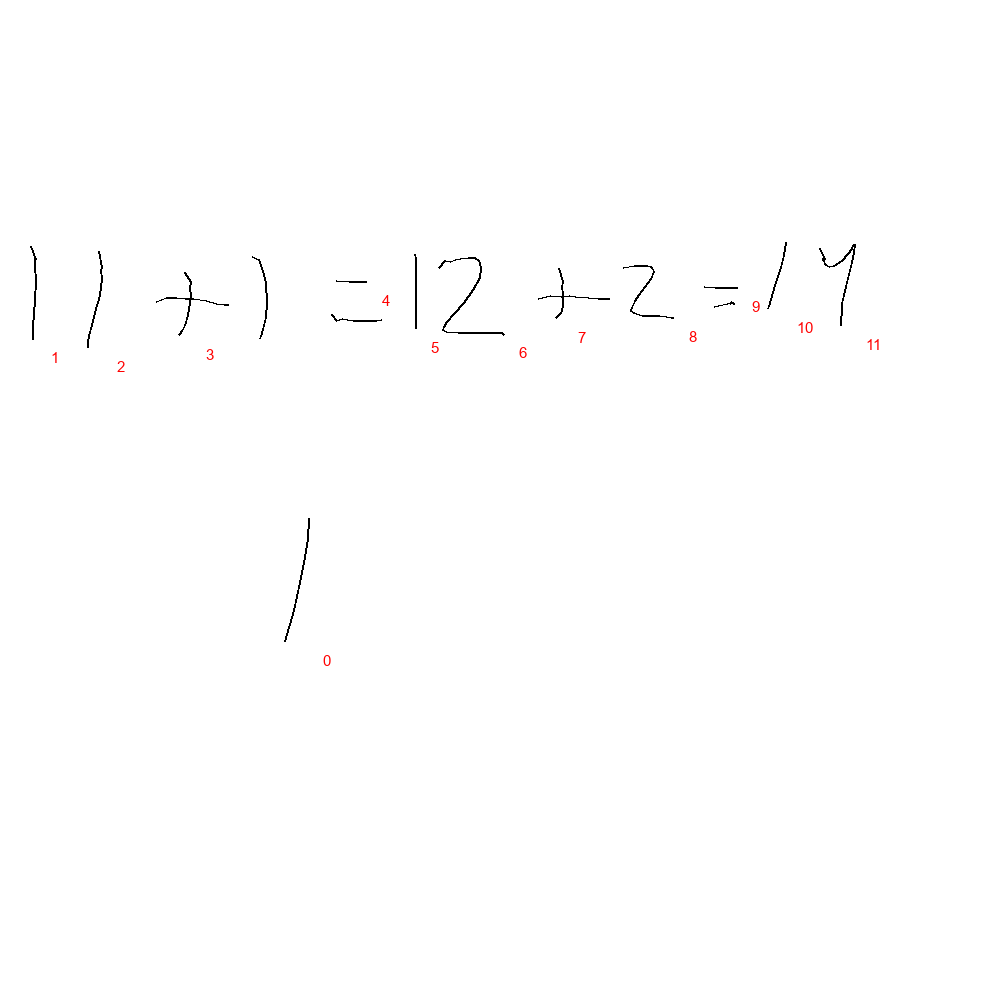 11 + 1 = 12 + 2 = 14
1 2 3 4 5 6 7 8 9 10 11
1
0